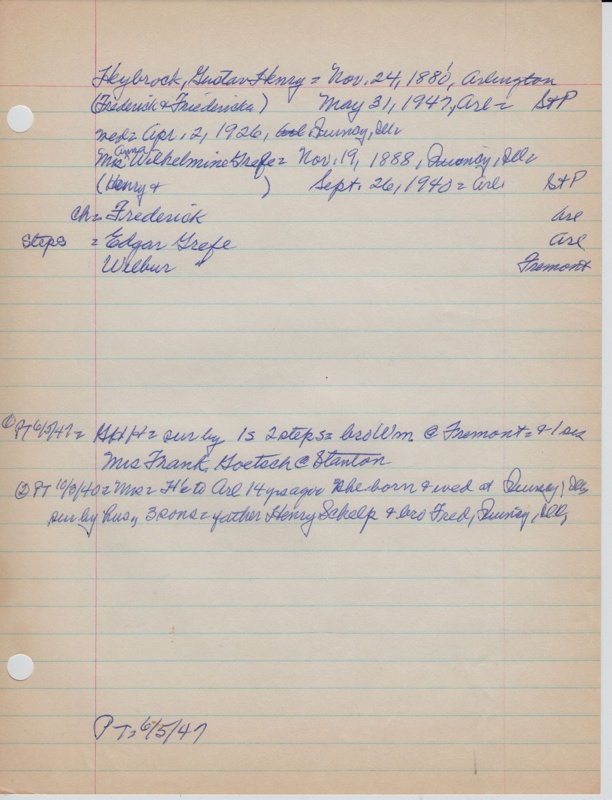 Heybrock, Gustav Henry = Nov. 24, 1880, Arlington
(Frederick & Friedericka) May 31, 1947, Arl = St P
wed = Apr. 2, 1926, Quincy, Ills
Mrs Anna Wilhelmine Grefe = Nov. 19, 1888, Quincy, Ills
(Henry & ) Sept. 26, 1940 = Arl. St P
Ch = Frederick Arl
Steps = Edgar Grefe Arl
Wilbur " Fremont
① PT 6/5/47 = GHH = sur by 1s 2 steps = bro Wm @ Fremont = & 1 sis
Mrs Frank Goetsch @ Stanton
② PT 10/3/40 = Mrs = H to Arl 14 yrs ago she born & wed at Quincy, Ills
sur by hus, 3 sons = father Henry Schelp & bro Fred, Quincy, Ills,
PT = 6/5/47